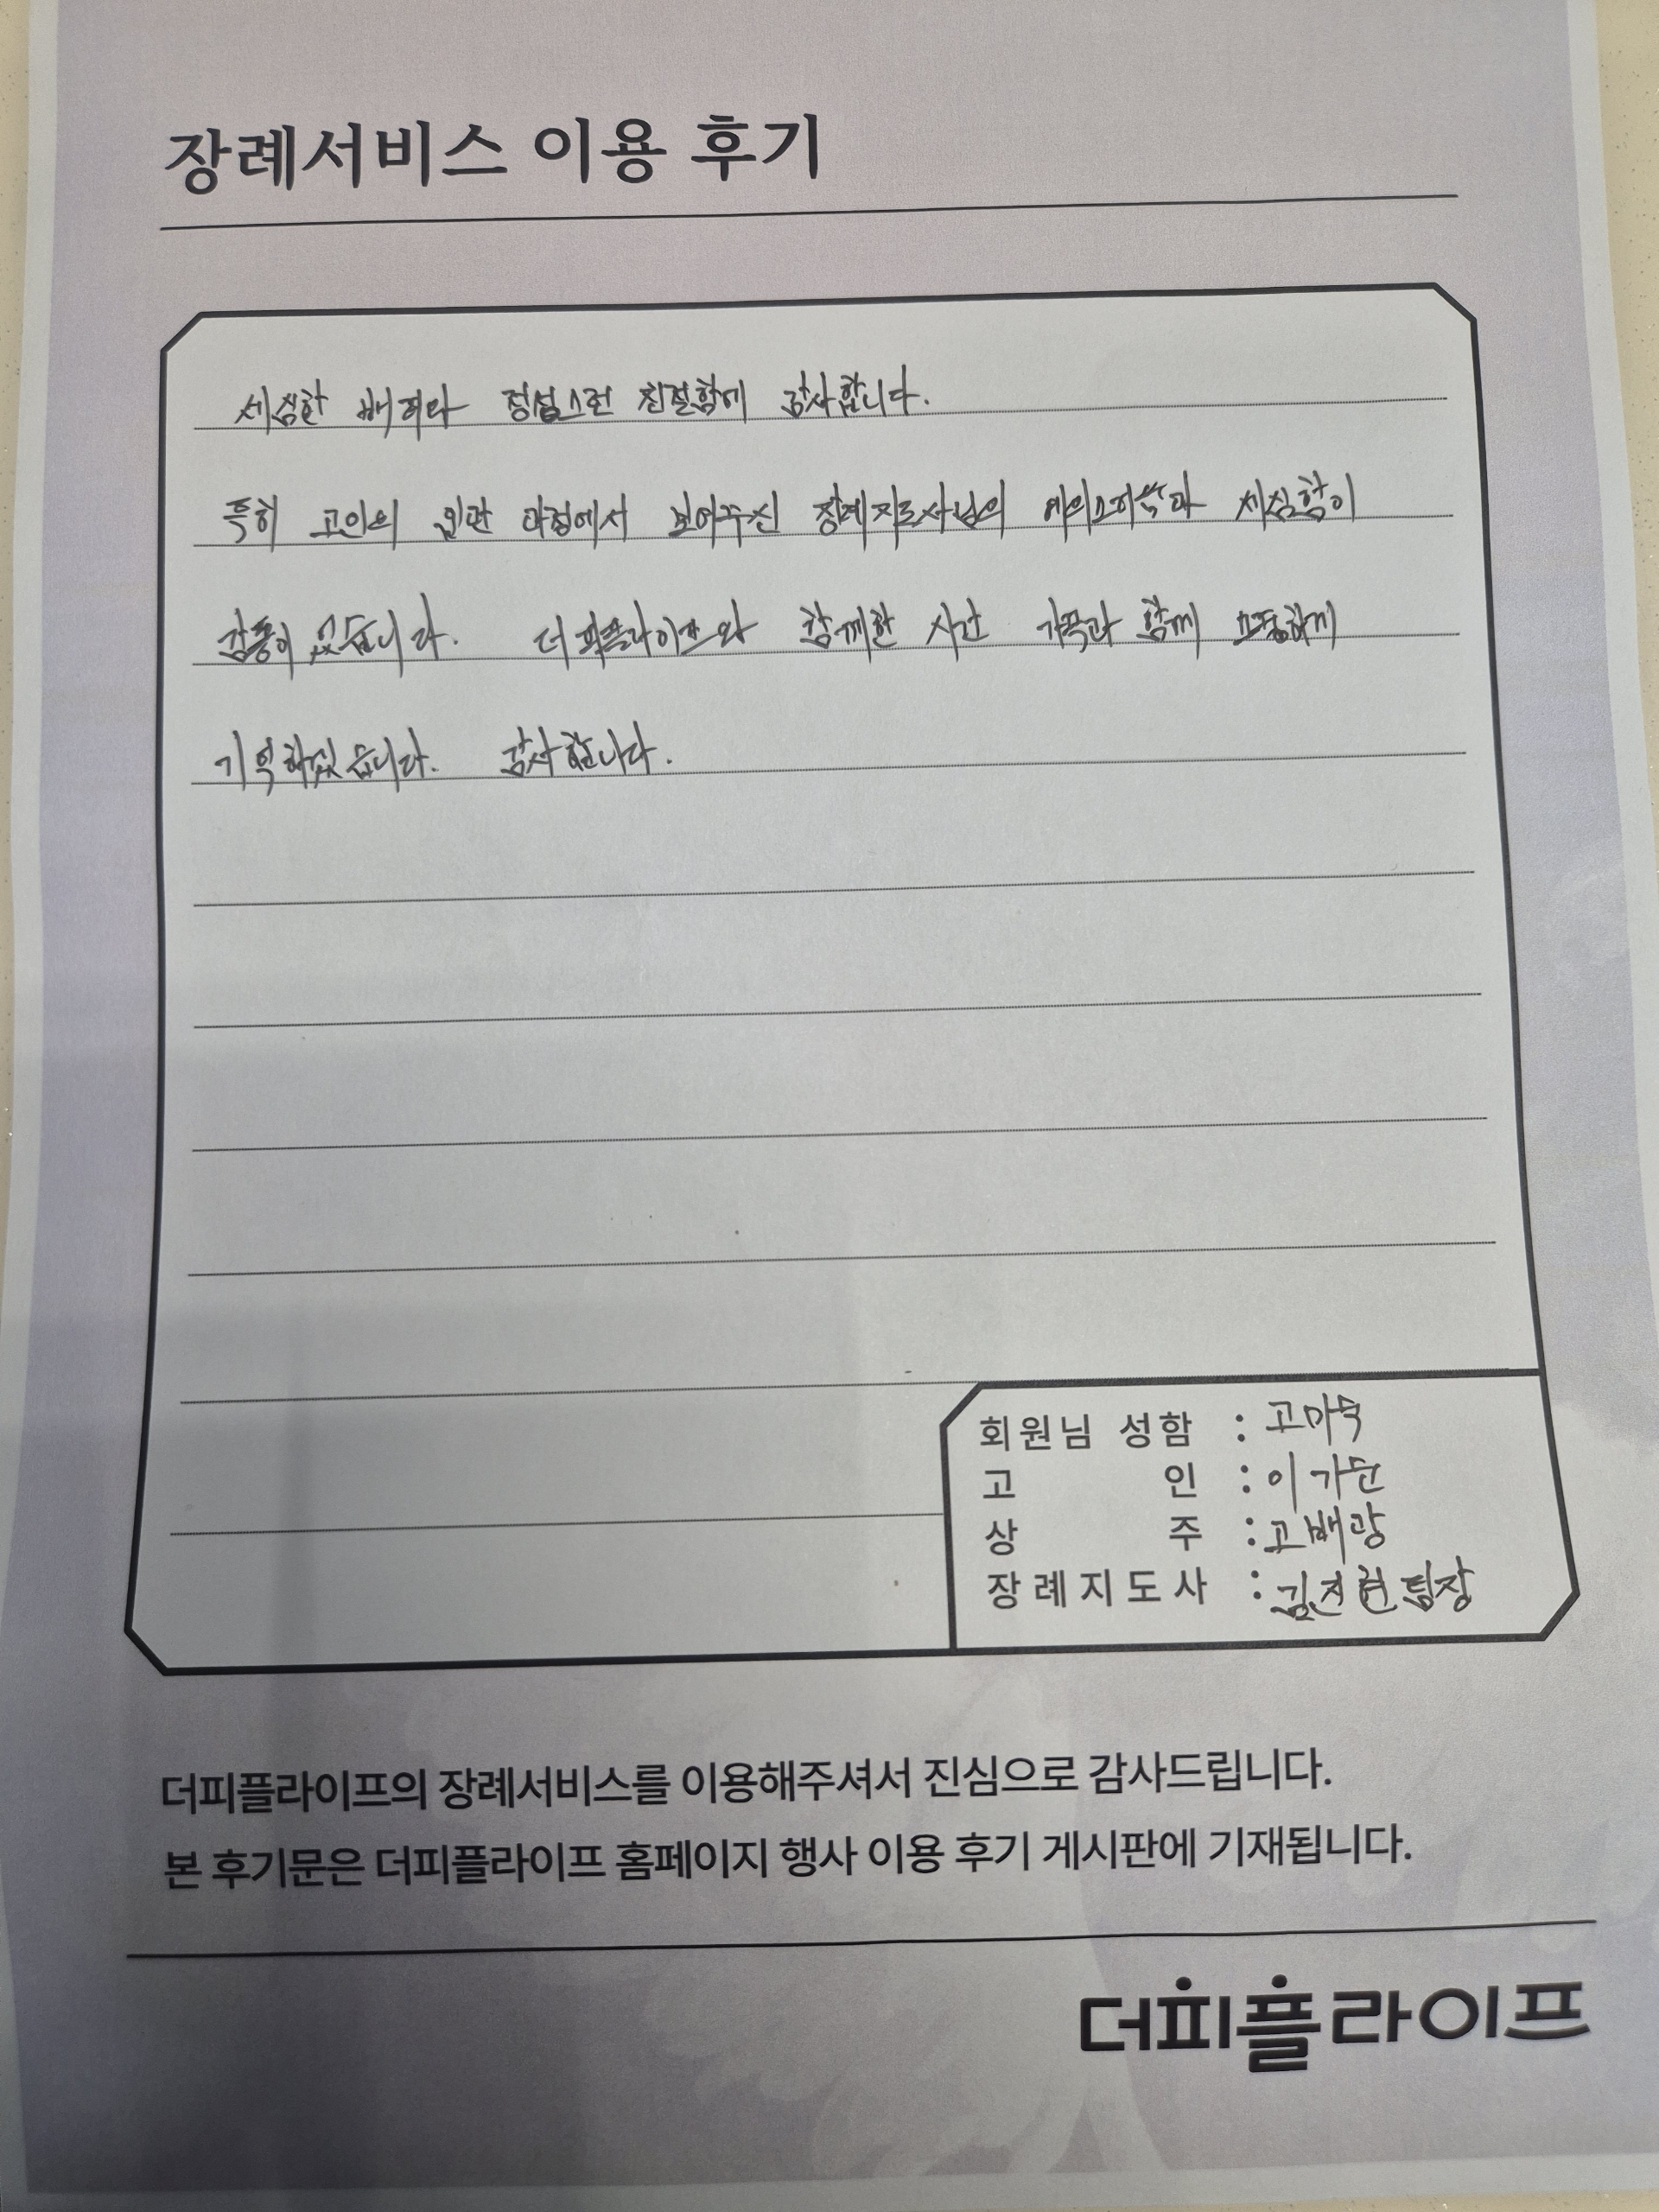 장례서비스 이용 후기
세심한 배려와 정성스런 친절함에 감사합니다.
특히 고인의 입관 과정에서 보여주신 장례지도사님의 예의스러움과 세심함이
감동이 있습니다. 더피플라이프와 함께한 시간 가족과 함께 소중하게
기억하겠습니다. 감사합니다.
회원님 성함 : 고마숙
고 인 : 이가순
상 주 : 고배광
장례지도사 : 김진현 팀장
더피플라이프의 장례서비스를 이용해주셔서 진심으로 감사드립니다.
본 후기문은 더피플라이프 홈페이지 행사 이용 후기 게시판에 기재됩니다.
더피플라이프